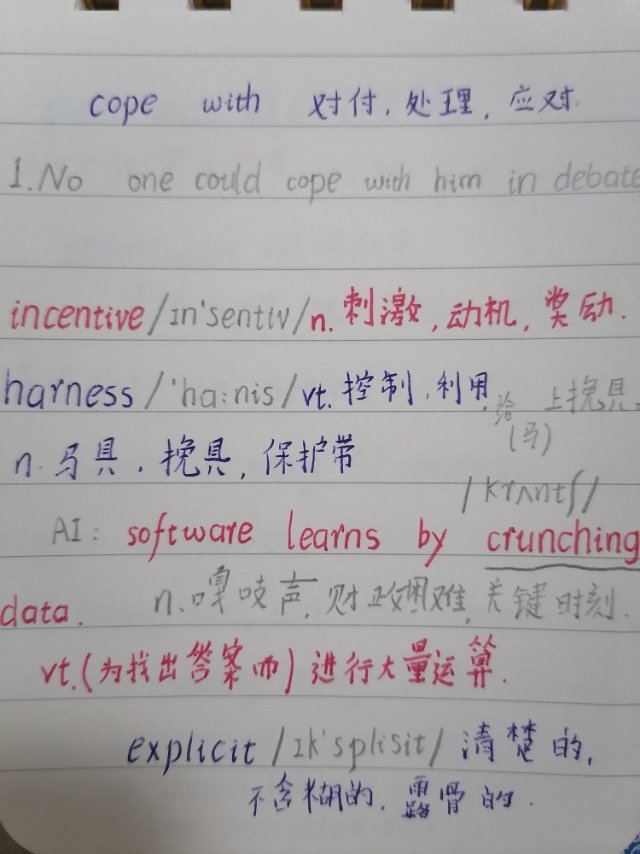 cope with 对付,处理,应对.
1.No one could cope with him in debate
incentive/ɪn'sentiv/n.刺激,动机,奖励.
harness/'ha:nis/vt.控制,利用,给(马)上挽具.
n.马具.挽具,保护带
/krʌntʃ/
AI: software learns by crunching
data. n.嘎吱声.财政困难,关键时刻.
vt.(为找出答案而)进行大量运算.
explicit/ɪk'splisit/清楚的,
不含糊的.露骨的.